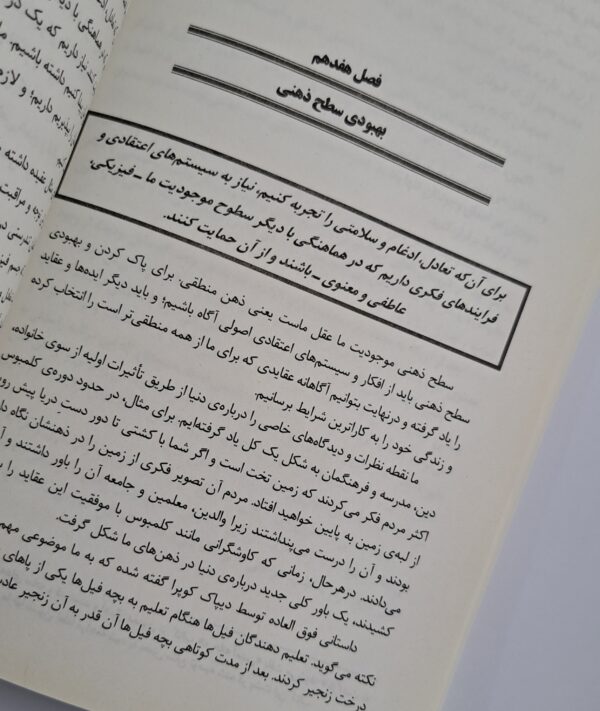 فصل هفدهم
بهبودی سطح ذهنی
برای آن که تعادل، ادغام و سلامتی را تجربه کنیم، نیاز به سیستم‌های اعتقادی و
فرایندهای فکری داریم که در هماهنگی با دیگر سطوح موجودیت ما ـ فیزیکی،
عاطفی و معنوی ـ باشند و از آن حمایت کنند.
سطح ذهنی موجودیت ما عقل ماست یعنی ذهن منطقی. برای پاک کردن و بهبودی
سطح ذهنی باید از افکار و سیستم‌های اعتقادی اصولی آگاه باشیم؛ و باید دیگر ایده‌ها و عقاید
را یاد گرفته و درنهایت بتوانیم آگاهانه عقایدی که برای ما از همه منطقی‌تر است را انتخاب کرده
و زندگی خود را به کاراترین شرایط برسانیم.
ما نقطه نظرات و دیدگاه‌های خاصی را درباره‌ی دنیا از طریق تأثیرات اولیه از سوی خانواده،
دین، مدرسه و فرهنگمان به شکل یک کل یاد گرفته‌ایم. برای مثال، در حدود دوره‌ی کلمبوس
اکثر مردم فکر می‌کردند که زمین تخت است و اگر شما با کشتی تا دور دستِ دریا پیش رو
از لبه‌ی زمین به پایین خواهید افتاد. مردم آن تصویر فکری از زمین را در ذهنشان نگاه دا
بودند و آن را درست می‌پنداشتند زیرا والدین، معلمین و جامعه آن را باور داشتند و آ
می‌دادند. درهرحال، زمانی که کاوشگرانی مانند کلمبوس با موفقیت این عقاید را ب
کشیدند، یک باور کلی جدید درباره‌ی دنیا در ذهن‌های ما شکل گرفت.
داستانی فوق العاده توسط دیپاک کوپرا گفته شده که به ما موضوعی مهم
نکته می‌گوید. تعلیم دهندگان فیل‌ها هنگام تعلیم به بچه فیل‌ها یکی از پاهای
درخت زنجیر کردند. بعد از مدت کوتاهی بچه فیل‌ها آن قدر به آن زنجیر عاد